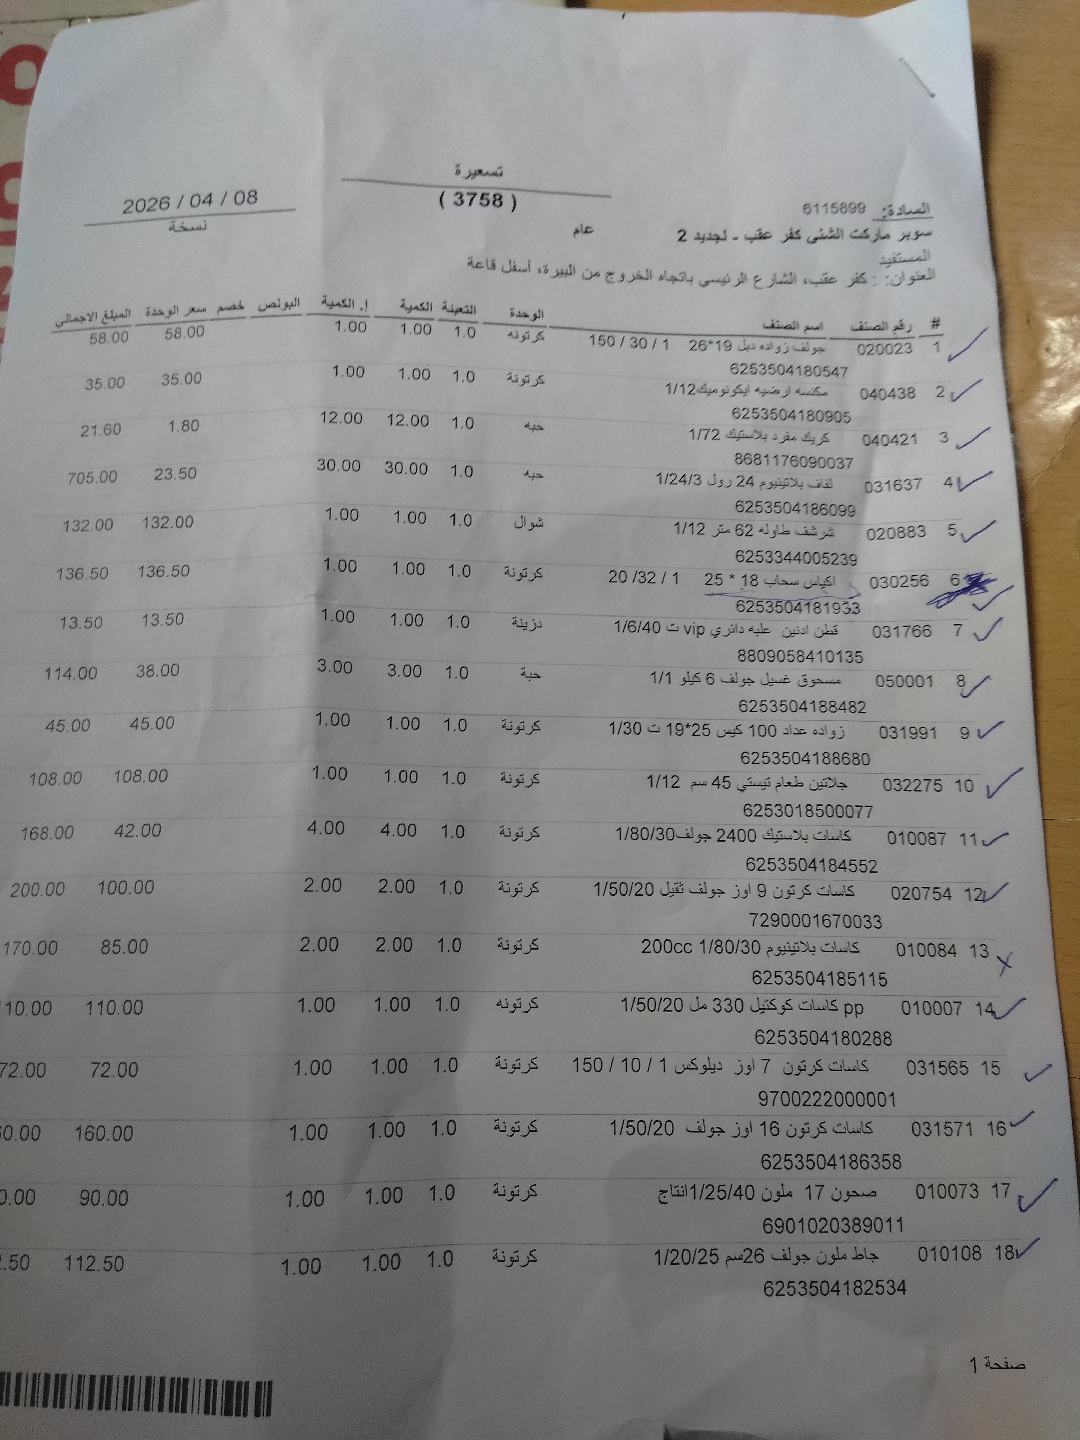 تسعيرة
( 3758 )
2026 / 04 / 08
نسخة
السادة: 6115899
سوبر ماركت الشني كفر عقب - لجديد 2
عام
المستفيد
العنوان: : كفر عقب، الشارع الرئيسي باتجاه الخروج من البيرة، أسفل قاعة
# رقم الصنف اسم الصنف الوحدة التعبئة الكمية ا. الكمية البونص خصم سعر الوحدة المبلغ الاجمالي
1 020023 جولف زواده دبل 19*26 1 / 30 / 150 كرتونه 1.0 1.00 1.00 58.00 58.00
6253504180547
2 040438 مكنسه ارضيه ايكونوميك1/12 كرتونة 1.0 1.00 1.00 35.00 35.00
6253504180905
3 040421 كريك مفرد بلاستيك 1/72 حبه 1.0 12.00 12.00 1.80 21.60
8681176090037
4 031637 لفاف بلاتينيوم 24 رول 1/24/3 حبه 1.0 30.00 30.00 23.50 705.00
6253504186099
5 020883 شرشف طاوله 62 متر 1/12 شوال 1.0 1.00 1.00 132.00 132.00
6253344005239
6 030256 اكياس سحاب 18 * 25 1 / 32/ 20 كرتونة 1.0 1.00 1.00 136.50 136.50
6253504181933
7 031766 قطن ادنين علبه دائري vip ت 1/6/40 دزينة 1.0 1.00 1.00 13.50 13.50
8809058410135
8 050001 مسحوق غسيل جولف 6 كيلو 1/1 حبة 1.0 3.00 3.00 38.00 114.00
6253504188482
9 031991 زواده عداد 100 كيس 25*19 ت 1/30 كرتونة 1.0 1.00 1.00 45.00 45.00
6253504188680
10 032275 جلاتين طعام تيستي 45 سم 1/12 كرتونة 1.0 1.00 1.00 108.00 108.00
6253018500077
11 010087 كاسات بلاستيك 2400 جولف1/80/30 كرتونة 1.0 4.00 4.00 42.00 168.00
6253504184552
12 020754 كاسات كرتون 9 اوز جولف ثقيل 1/50/20 كرتونة 1.0 2.00 2.00 100.00 200.00
7290001670033
13 010084 كاسات بلاتينيوم 200cc 1/80/30 كرتونة 1.0 2.00 2.00 85.00 170.00
6253504185115
14 010007 pp كاسات كوكتيل 330 مل 1/50/20 كرتونه 1.0 1.00 1.00 110.00 10.00
6253504180288
15 031565 كاسات كرتون 7 اوز ديلوكس 1 / 10 / 150 كرتونة 1.0 1.00 1.00 72.00 72.00
9700222000001
16 031571 كاسات كرتون 16 اوز جولف 1/50/20 كرتونة 1.0 1.00 1.00 160.00 0.00
6253504186358
17 010073 صحون 17 ملون 1/25/40انتاج كرتونة 1.0 1.00 1.00 90.00 0.00
6901020389011
18 010108 جاط ملون جولف 26سم 1/20/25 كرتونة 1.0 1.00 1.00 112.50 .50
6253504182534
صفحة 1